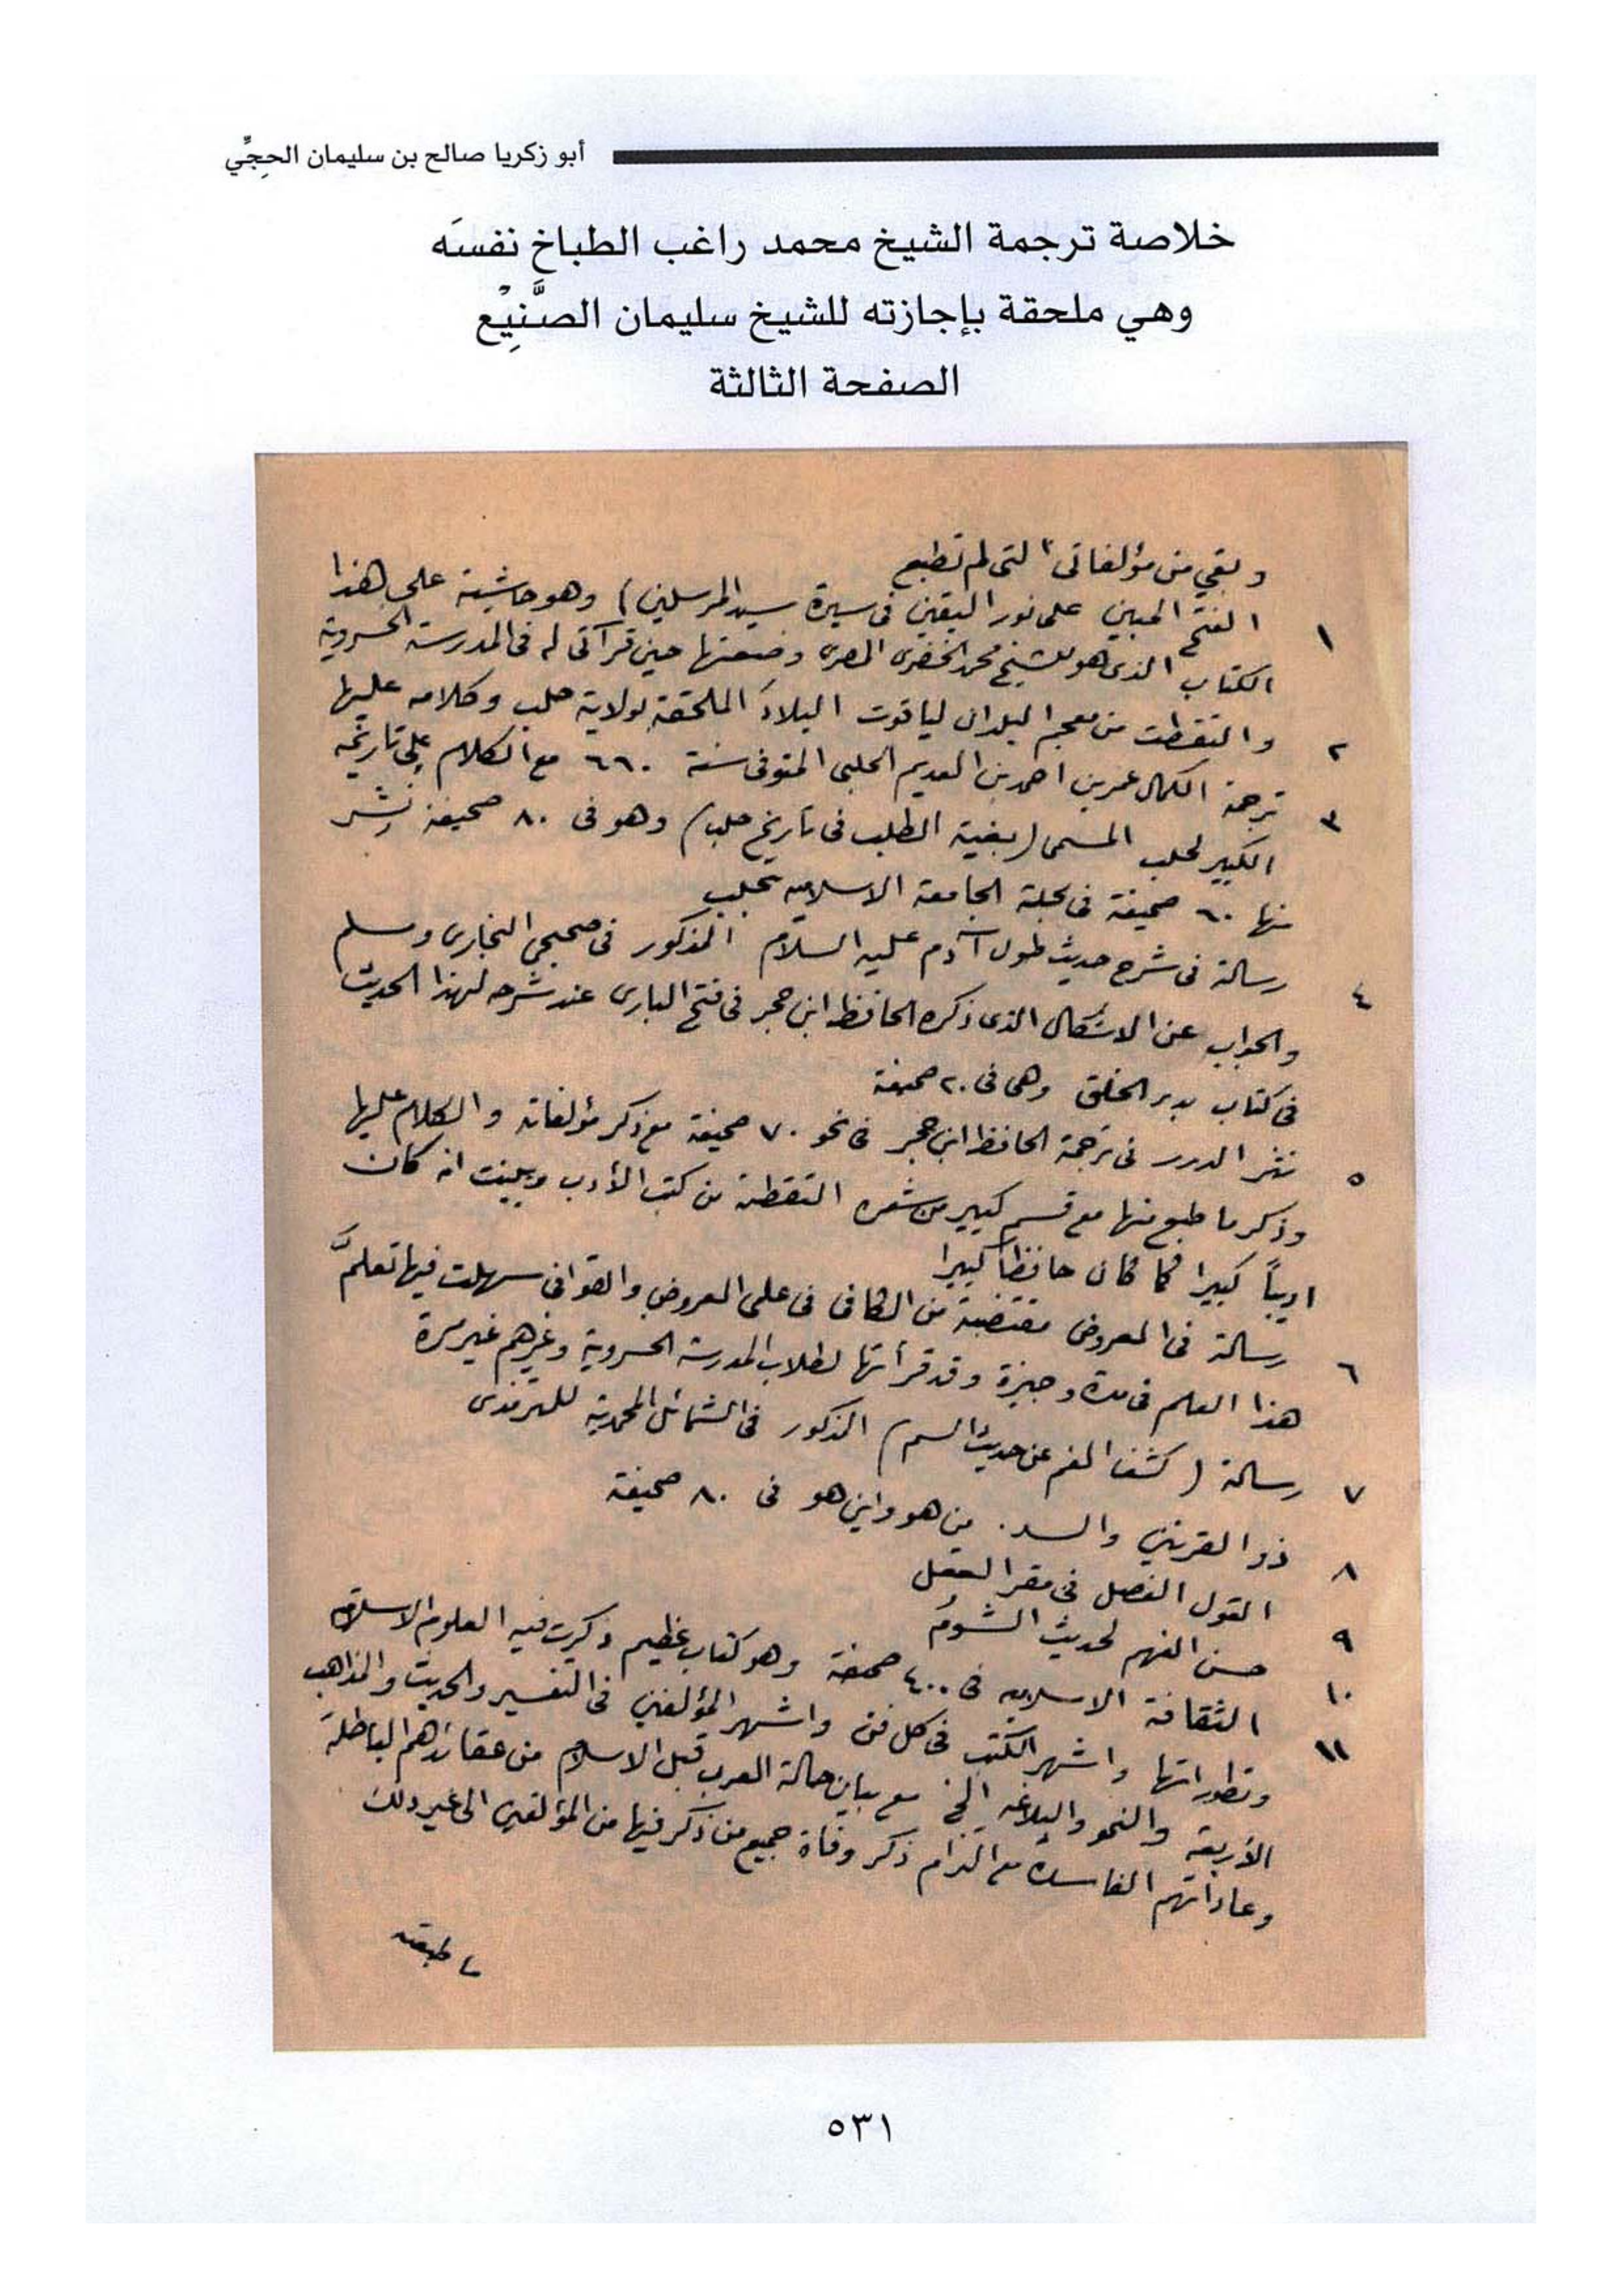 أبو زكريا صالح بن سليمان الحجِّي
خلاصة ترجمة الشيخ محمد راغب الطباخ نفسَه
وهي ملحقة بإجازته للشيخ سليمان الصَّنِيْع
الصفحة الثالثة
وبقي من مؤلفاتى التى لم تطبع
١ الفتح المبين على نور اليقين فى سيرة سيد المرسلين) وهو حاشية على هذا
الكتاب الذى هو للشيخ محمد الخضرى المصرى وضعتها حين قرآتى له فى المدرسة الخسروية
٢ والتقطت من معجم البلدان لياقوت البلاد الملحقة بولاية حلب وكلامه عليها
٣ ترجمة الكمال عمر بن احمد بن العديم الحلبى المتوفى سنة ٦٦٠ مع الكلام على تاريخه
الكبير لحلب المسمى (بغية الطلب فى تاريخ حلب) وهو فى ٨٠ صحيفة نشر
منها ٦٠ صحيفة فى مجلة الجامعة الاسلاميه بحلب
٤ رسالة فى شرح حديث طول آدم عليه السلام المذكور فى صحيحي البخارى ومسلم
والجواب عن الاشكال الذى ذكره الحافظ ابن حجر فى فتح البارى عند شرحه لهذا الحديث
فى كتاب بدء الخلق وهى فى ٢٠ صحيفة
٥ نثر الدرر فى ترجمة الحافظ ابن حجر فى نحو ٧٠ صحيفة مع ذكر مؤلفاته والكلام عليها
وذكر ما طبع منها مع قسم كبير من شعره التقطته من كتب الأدب وبينت انه كان
اديباً كبيرا كما كان حافظاً كبيرا
٦ رسالة فى العروض مقتضبة من الكافى فى علمى العروض والقوافى سهلت فيها تعلم
هذا العلم فى مدة وجيزة وقد قرأتها لطلاب المدرسة الخسروية وغيرهم غير مرة
٧ رسالة (كشف الغم عن حديث السم) المذكور فى الشمائل المحمدية للترمذى
٨ ذو القرنين والسد. من هو واين هو فى ٨٠ صحيفة
٩ القول الفصل فى مقر العقل
١٠ حسن الفهم لحديث الشوم
١١ الثقافة الاسلاميه فى ٤٠٠ صحيفة وهو كتاب عظيم ذكرت فيه العلوم الاسلاميه
وتطوراتها واشهر الكتب فى كل فن واشهر المؤلفين فى التفسير والحديث والمذاهب
الأربعة والنحو والبلاغه الخ مع بيان حالة العرب قبل الاسلام من عقائدهم الباطلة
وعاداتهم الفاسدة مع التزام ذكر وفاة جميع من ذكر فيها من المؤلفين الى غير ذلك
ما طبعته
٥٣١